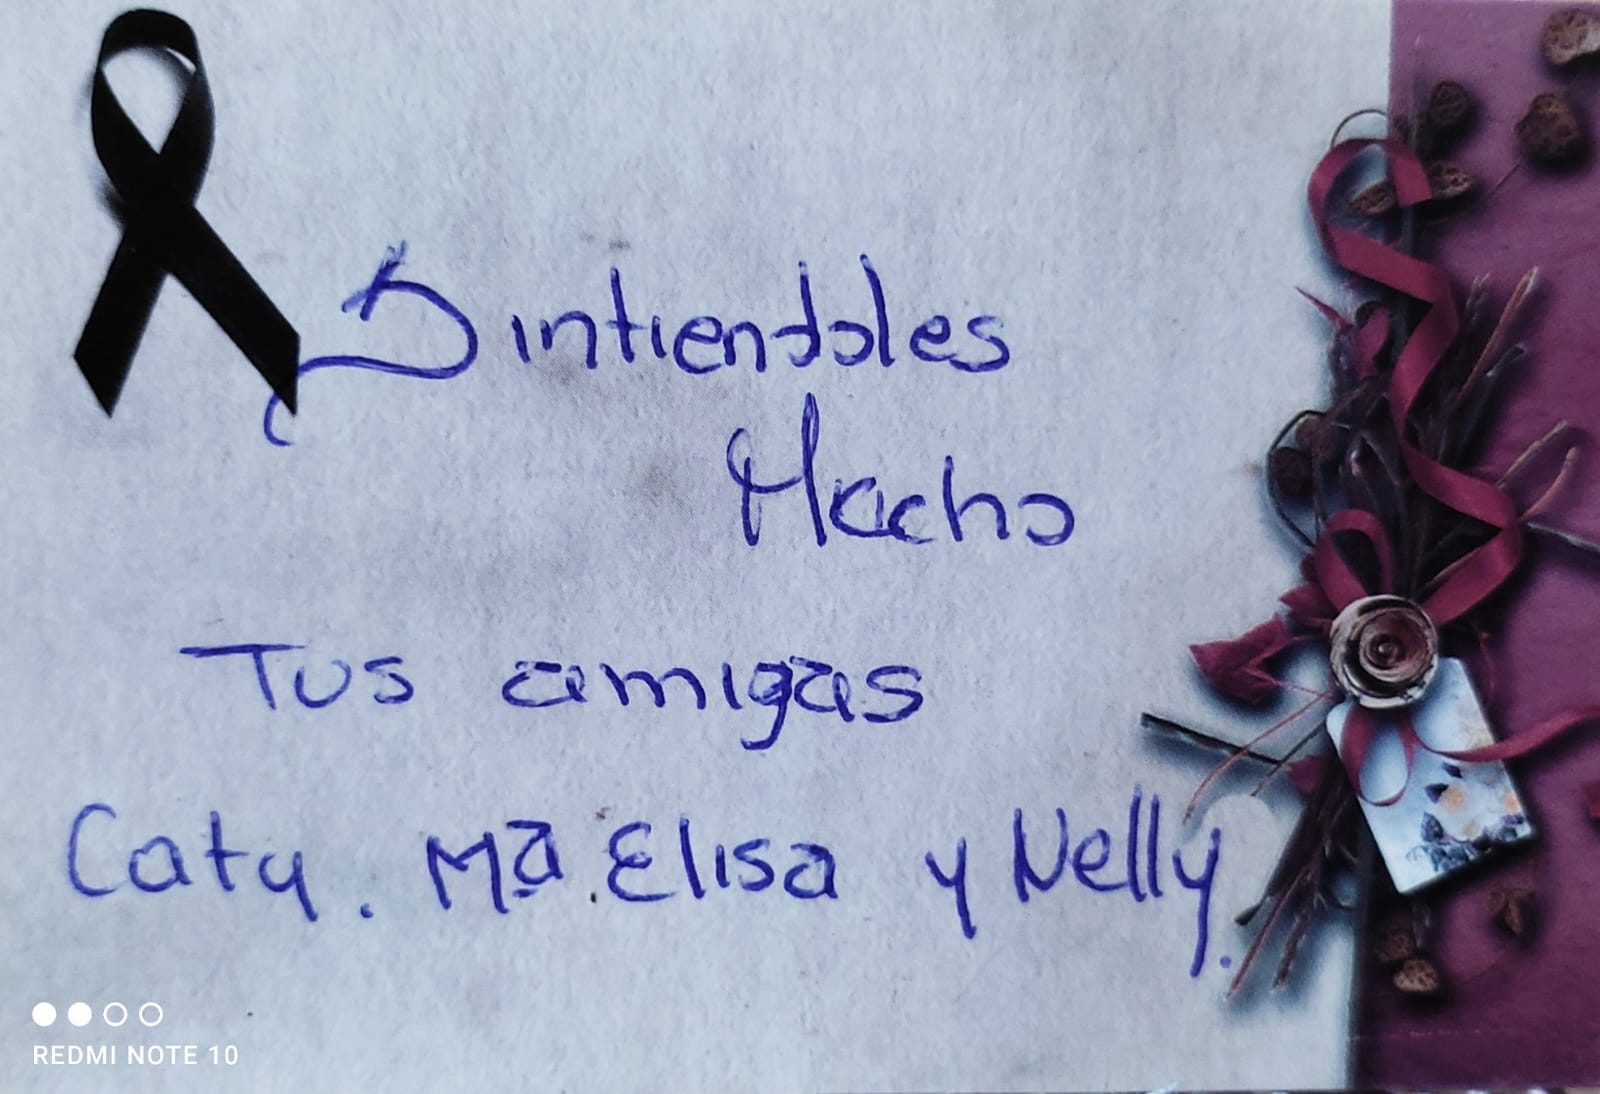 Sintiendoles
Mucho
Tus amigas
Caty. Mª Elisa y Nelly.
REDMI NOTE 10